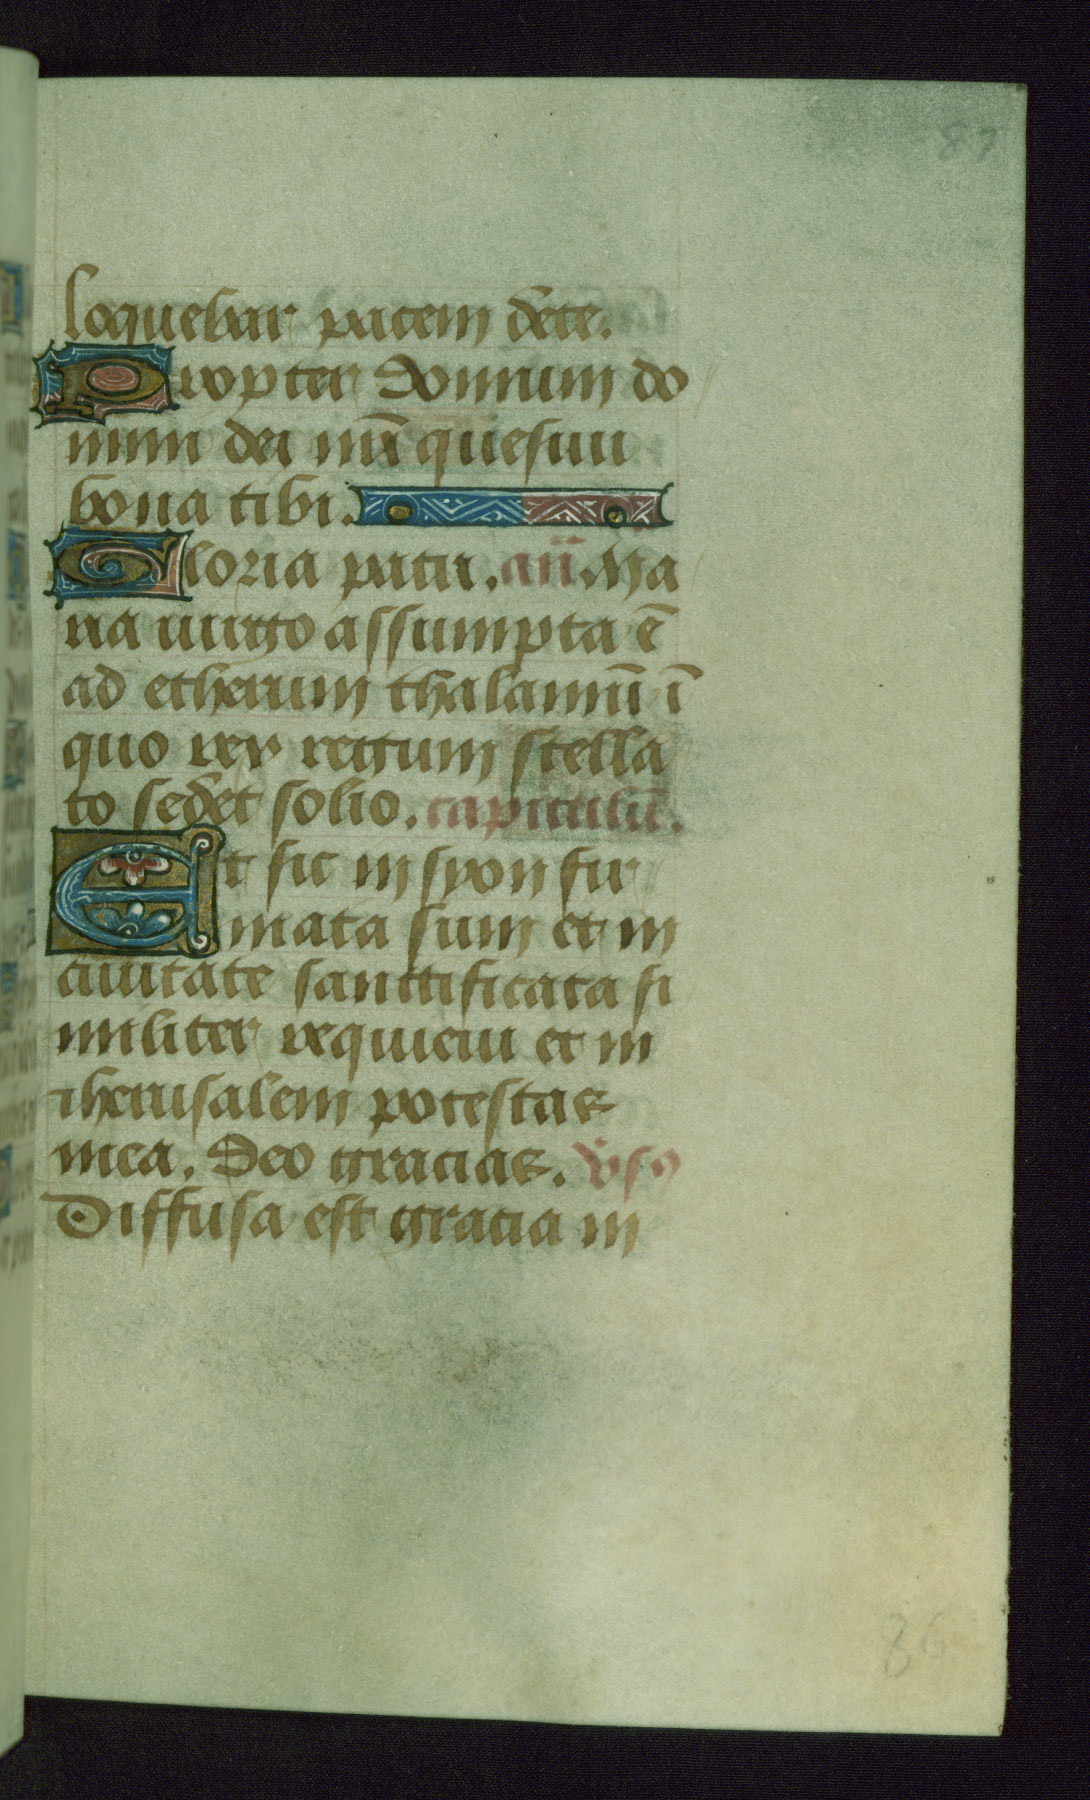 87
loquebar pacem de te.
Propter domum do
mini dei mei quesiui
bona tibi.
Gloria patri. añ Ma
ria uirgo assumpta ē
ad ethereum thalamū ī
quo rex regum stella
to sedet solio. capitulū.
Et sic in syon fir
mata sum et in
ciuitate sanctificata si
militer requieui et in
iherusalem potestas
mea. Deo gracias. v̄s9
Diffusa est gracia in
86